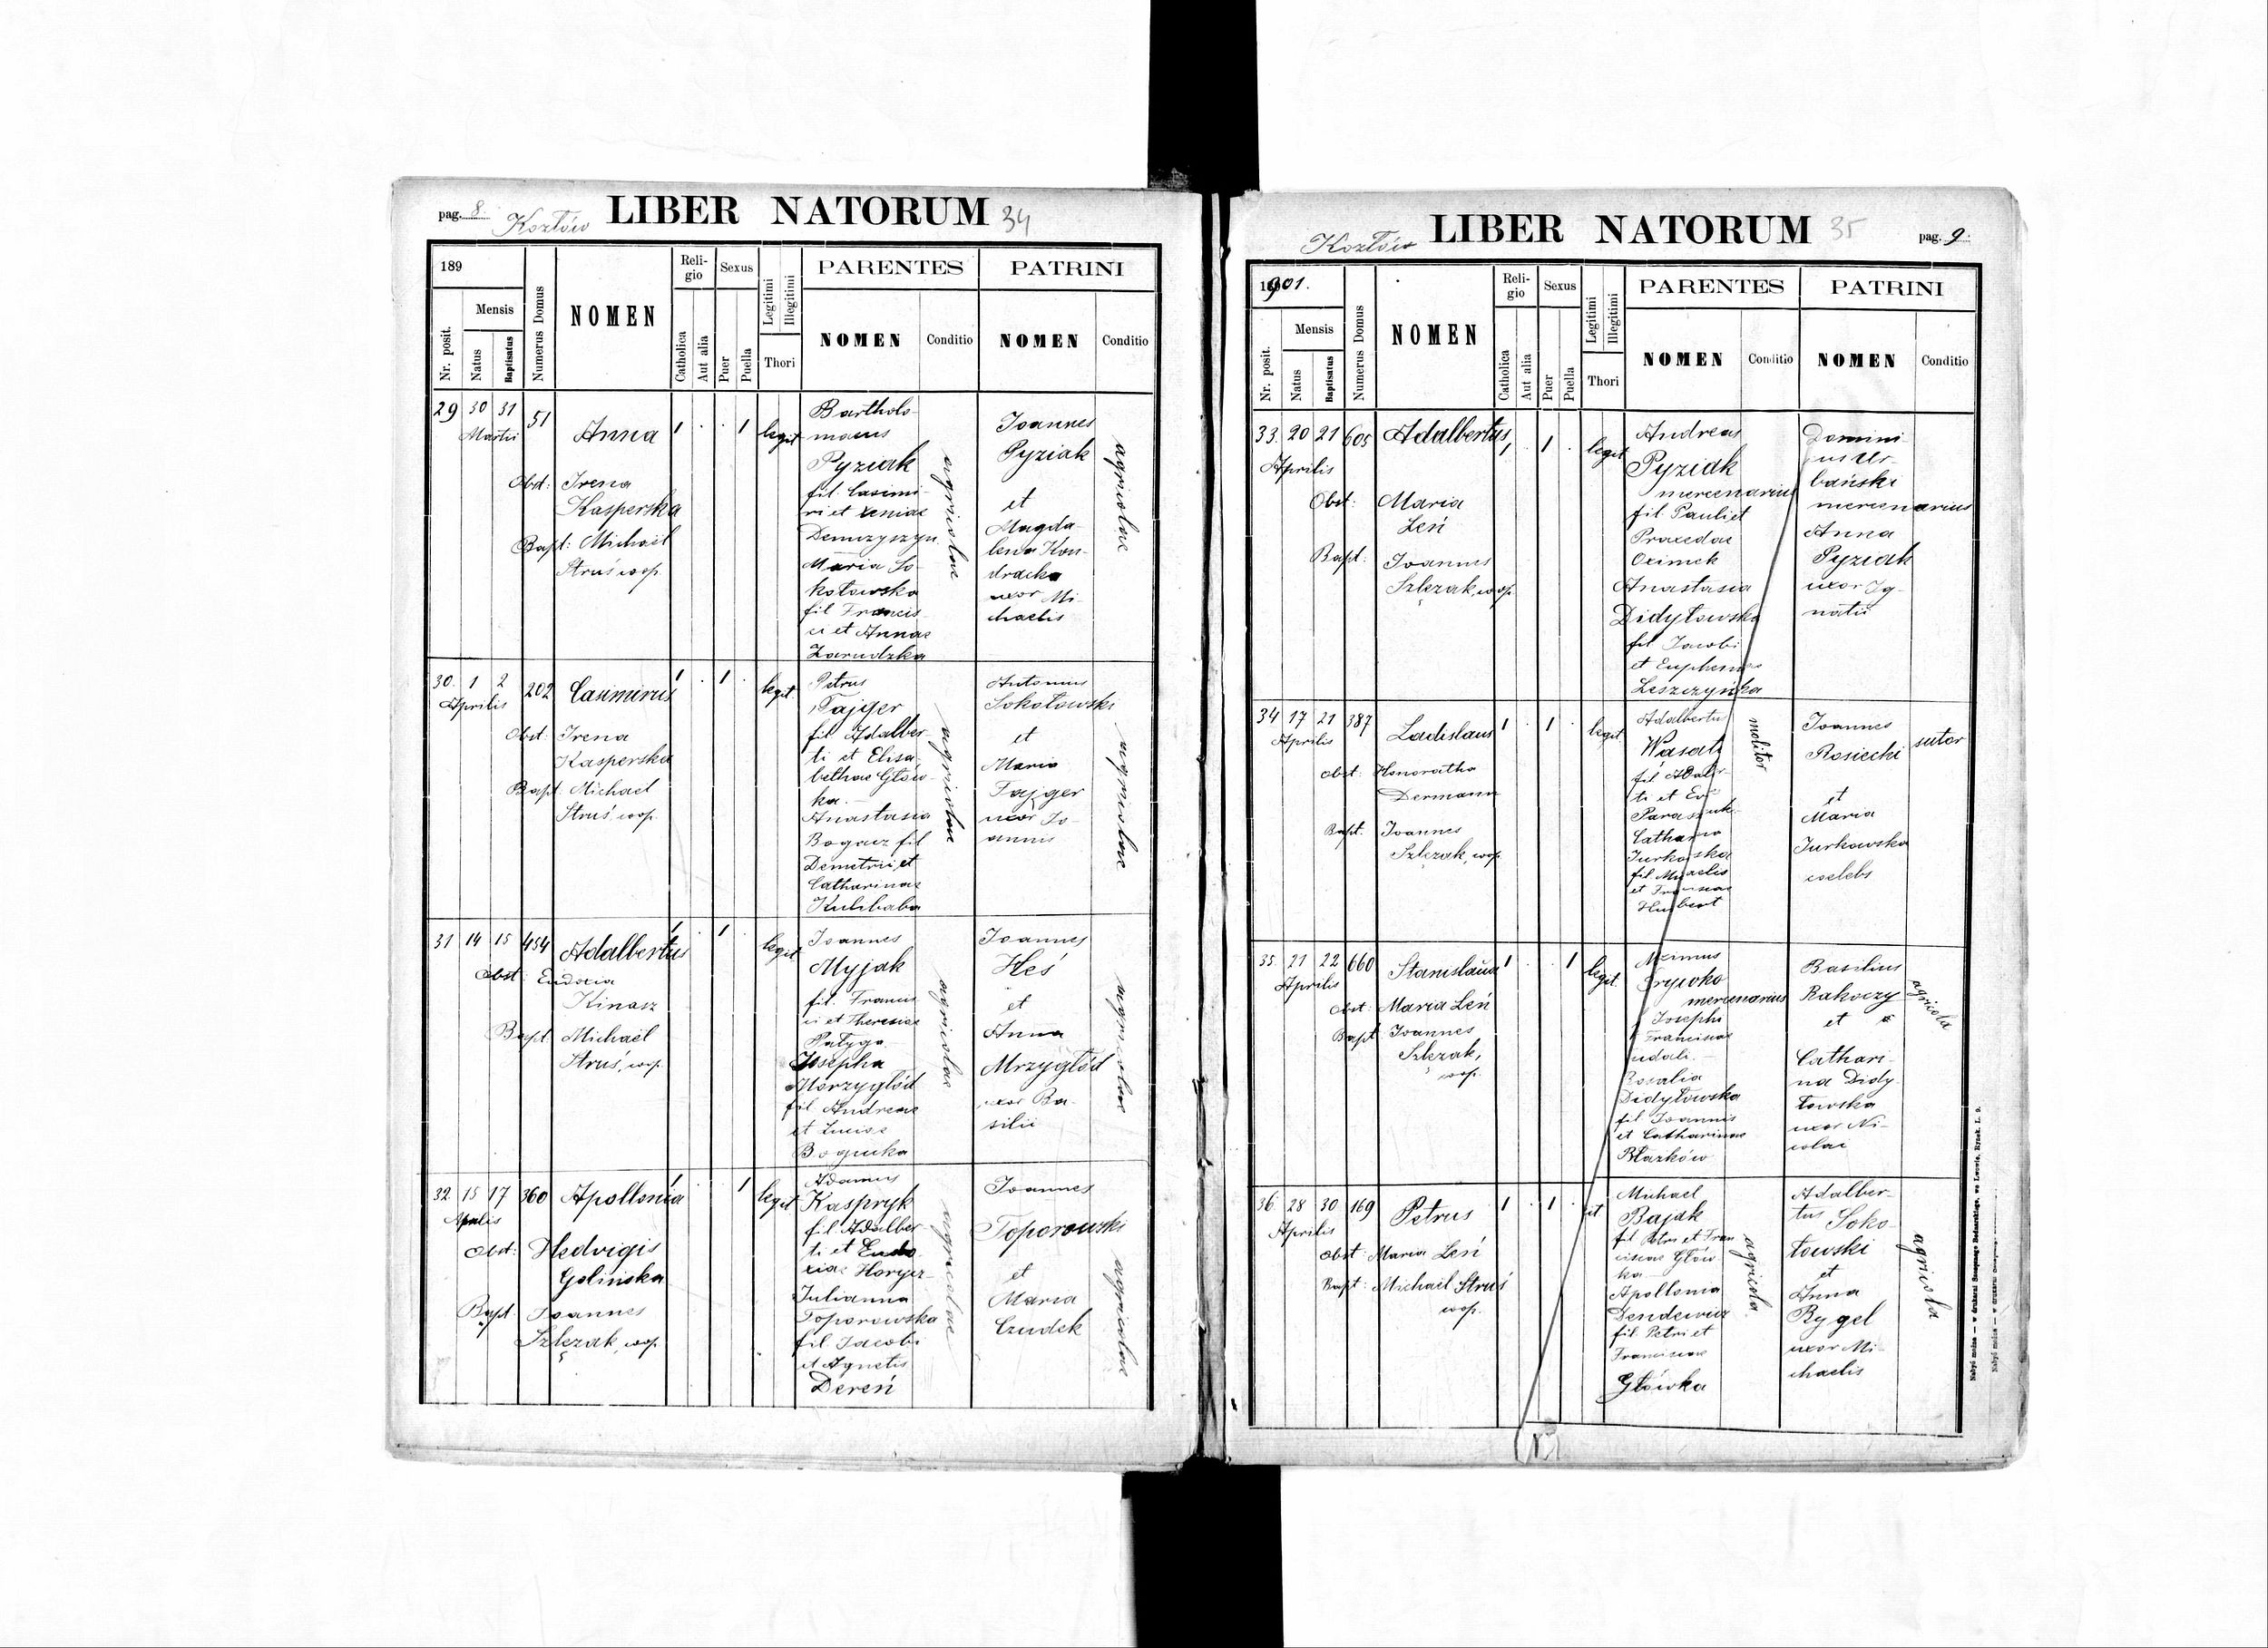 pag. 8
Kozłów
LIBER NATORUM 34
189
Nr. posit.
Mensis
Natus
Baptisatus
Numerus Domus
NOMEN
Reli-
gio
Catholica
Aut alia
Sexus
Puer
Puella
Legitimi
Illegitimi
Thori
PARENTES
NOMEN
Conditio
PATRINI
NOMEN
Conditio
29 30 31
Martii
51
Anna
1 . . 1
legit
Obst: Irena
Kasperska
Bapt: Michaël
Struś coop.
Bartholo-
maeus
Pyziak
fil. Casimi-
ri et Xeniae
Demczyszyn
Maria So-
kołowska
fil Francis-
ci et Annae
Zarudzka
agricolae
Joannes
Pyziak
et
Magda-
lena Kon-
dracka
uxor Mi-
chaelis
agricolae
30. 1 2
Aprilis
202
Casimirus
1 . 1 .
legit
Obst: Irena
Kasperska
Bapt: Michael
Struś coop.
Petrus
Tajger
fil Adalber-
ti et Elisa-
bethae Głów-
ka.
Anastasia
Bogacz fil
Demetrii et
Catharinae
Kulibaba
agricolae
Antonius
Sokołowski
et
Maria
Tajger
uxor Jo-
annis
agricolae
31 14 15 454
Adalbertus
1 . 1 .
legit
Obst: Eudoxia
Kinasz
Bapt: Michaël
Struś, coop.
Joannes
Myjak
fil. Francis
ci et Theresiae
Patyga
Josepha
Morzygłód
fil Andreae
et Luciae
Bogucka
agricolae
Joannes
Heś
et
Anna
Mrzygłód
uxor Ba-
silii
agricolae
32. 15 17 360
Aprilis
Apollonia
1 . . 1
legit
Obst: Hedvigis
Golińska
Bapt. Joannes
Szlęzak, coop.
Adamus
Kaspryk
fil. Adalber-
ti et Eudo
xiae
Julianna
Toporowska
fil. Jacobi
et Agnetis
Dereń
agricolae
Joannes
Toporowski
et
Maria
Czudek
agricolae
Kozłów
LIBER NATORUM 35
pag. 9
1901.
Nr. posit.
Mensis
Natus
Baptisatus
Numerus Domus
NOMEN
Reli-
gio
Catholica
Aut alia
Sexus
Puer
Puella
Legitimi
Illegitimi
Thori
PARENTES
NOMEN
Conditio
PATRINI
NOMEN
Conditio
33. 20 21 605
Aprilis
Adalbertus
1 . 1 .
legit
Obst: Maria
Leń
Bapt: Joannes
Szlęzak, coop.
Andreas
Pyziak
mercenarius
fil. Pauli et
Praxedae
Oximek
Anastasia
Didyłowska
fil Jacobi
et Euphemiae
Leszczyńka
Domini-
cus Ur-
bański
mercenarius
Anna
Pyziak
uxor Ig-
natii
34 17 21 387
Aprilis
Ladislaus
1 . 1 .
legit.
Obst: Honoratha
Dermann
Bapt. Joannes
Szlęzak, coop.
Adalbertus
Wasat
fil Adalr-
ti et
Paraszuk
Catharina
Jurkowska
fil Michaelis
et Franciscae
Humbert
molitor
Joannes
Rosiecki
et
Maria
Jurkowska
coelebs
sutor
35. 21 22 660
Aprilis
Stanislaus
1 . . 1
legit.
Obst: Maria Leń
Bapt Joannes
Szlęzak,
coop.
mercenarius
Josephi
Franciscae
Rosalia
Didyłowska
fil Joannis
et Catharinae
Błazków
Basilius
Rakoczy
et
Cathari-
na Didy-
łowska
uxor Ni-
colai
agricola
36. 28 30 169
Aprilis
Petrus
1 . 1 .
Obst: Maria Leń
Bapt: Michaël Struś
coop.
Michael
Bajak
fil Petri et Fran
ciscae Głów-
ka
Apollonia
Dendewicz
fil. Petri et
Franciscae
Główka
agricola.
Adalber-
tus Soko-
łowski
et
Anna
Rygel
uxor Mi-
chaelis
agricola